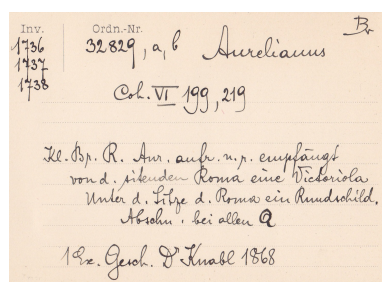 Inv. Ordn.-Nr. Br
1736 32.829, a, b Aurelianus
1737
1738
Coh. VI 199, 219
Kl. Br. R. Aur. aufr. n. r. empfängt
von d. sitzenden Roma eine Victoriola
Unter d. Sitze d. Roma ein Rundschild.
Abschn. bei allen Q
1 Ex. Gesch. Dr Knabl 1868